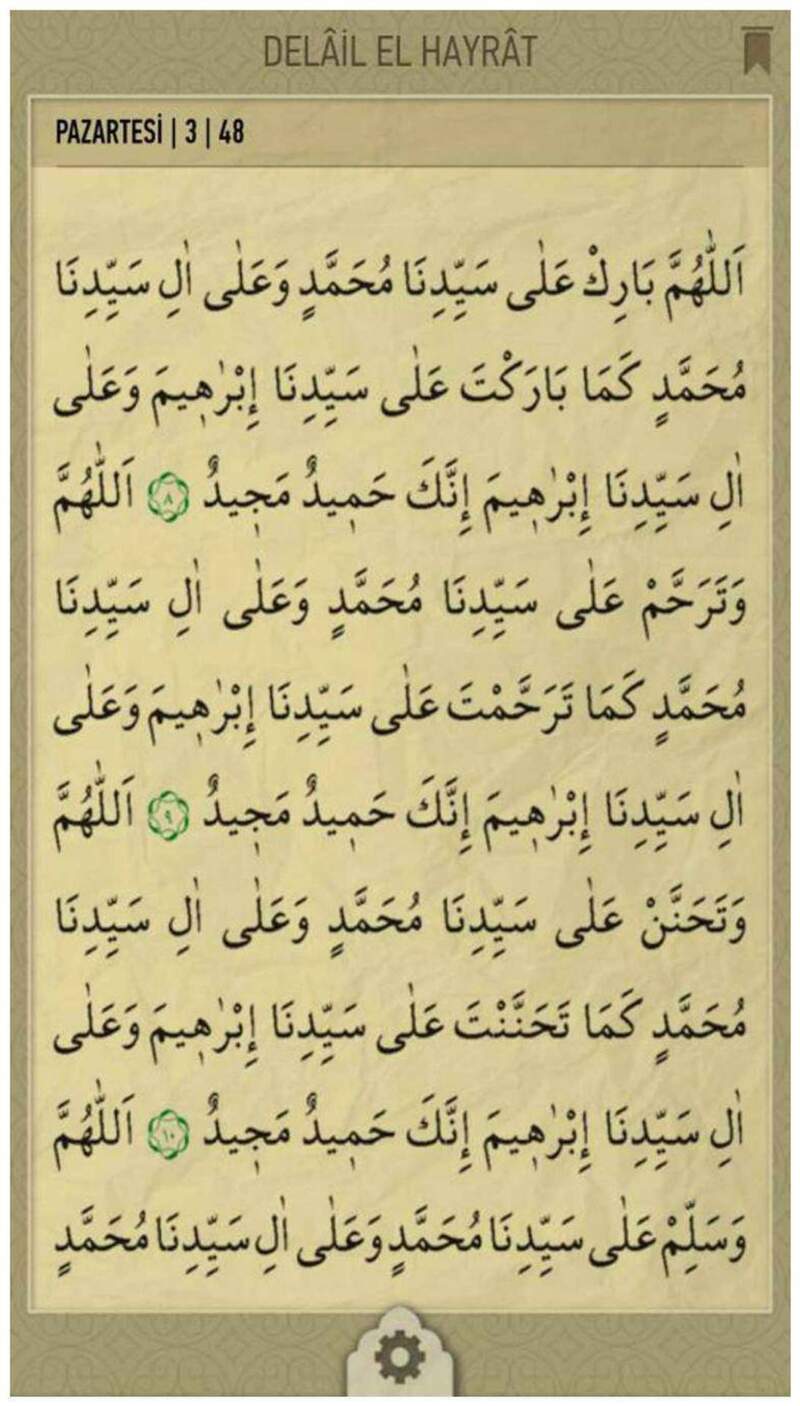 DELÂİL EL HAYRÂT
PAZARTESİ | 3 | 48
اَللّٰهُمَّ بَارِكْ عَلٰى سَيِّدِنَا مُحَمَّدٍ وَعَلٰى اٰلِ سَيِّدِنَا
مُحَمَّدٍ كَمَا بَارَكْتَ عَلٰى سَيِّدِنَا إِبْرٰهٖيمَ وَعَلٰى
اٰلِ سَيِّدِنَا إِبْرٰهٖيمَ إِنَّكَ حَمٖيدٌ مَجٖيدٌ ٨ اَللّٰهُمَّ
وَتَرَحَّمْ عَلٰى سَيِّدِنَا مُحَمَّدٍ وَعَلٰى اٰلِ سَيِّدِنَا
مُحَمَّدٍ كَمَا تَرَحَّمْتَ عَلٰى سَيِّدِنَا إِبْرٰهٖيمَ وَعَلٰى
اٰلِ سَيِّدِنَا إِبْرٰهٖيمَ إِنَّكَ حَمٖيدٌ مَجٖيدٌ ٩ اَللّٰهُمَّ
وَتَحَنَّنْ عَلٰى سَيِّدِنَا مُحَمَّدٍ وَعَلٰى اٰلِ سَيِّدِنَا
مُحَمَّدٍ كَمَا تَحَنَّنْتَ عَلٰى سَيِّدِنَا إِبْرٰهٖيمَ وَعَلٰى
اٰلِ سَيِّدِنَا إِبْرٰهٖيمَ إِنَّكَ حَمٖيدٌ مَجٖيدٌ ١٠ اَللّٰهُمَّ
وَسَلِّمْ عَلٰى سَيِّدِنَا مُحَمَّدٍ وَعَلٰى اٰلِ سَيِّدِنَا مُحَمَّدٍ